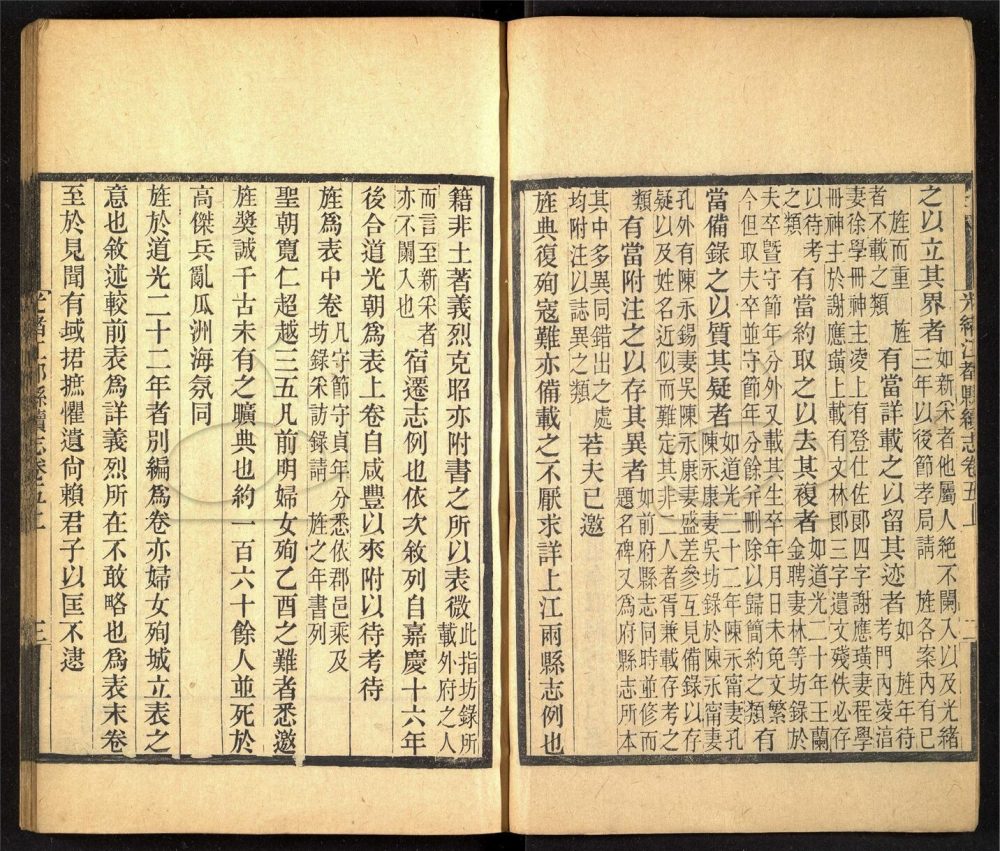 光緒江都縣續志卷五上 二
之以立其界者
如新采者他屬人絶不闌入以及光緒
三年以後節孝局請 旌各案內有已
旌而重 旌
者不載之類
有當詳載之以留其迹者
如 旌年待
考門內凌湆
妻徐學冊神主凌上有登仕佐郞四字謝應璜妻程學
冊神主於謝應璜上載有文林郞三字遺文殘佚必存
以待考
之類
有當約取之以去其複者
如道光二十年王蘭
金聘妻林等坊錄於
夫卒暨守節年分外又載其生卒年月日未免文繁
今但取夫卒並守節年分餘並刪除以歸簡約之類
有
當備錄之以質其疑者
如道光二十二年陳永甯妻孔
陳永康妻吳坊錄於陳永甯妻
孔外有陳永錫妻吳陳永康妻盛差參互見備錄以存
疑以及姓名近似而難定其非一人者胥兼載存考之
類
有當附注之以存其異者
如前府縣志同時並修而
題名碑又爲府縣志所本
其中多異同錯出之處
均附注以誌異之類
若夫已邀
旌典復殉寇難亦備載之不厭求詳上江兩縣志例也
籍非土著義烈克昭亦附書之所以表微
此指坊錄所
載外府之人
而言至新采者
亦不闌入也
宿遷志例也依次敘列自嘉慶十六年
後合道光朝爲表上卷自咸豐以來附以待考待
旌爲表中卷
凡守節守貞年分悉依郡邑乘及
坊錄采訪錄請 旌之年書列
聖朝寬仁超越三五凡前明婦女殉乙酉之難者悉邀
旌奬誠千古未有之曠典也約一百六十餘人並死於
高傑兵亂瓜洲海氛同
旌於道光二十二年者別編爲卷亦婦女殉城立表之
意也敘述較前表爲詳義烈所在不敢略也爲表末卷
至於見聞有域捃摭懼遺尙賴君子以匡不逮
光緒江都縣續志卷五上 三